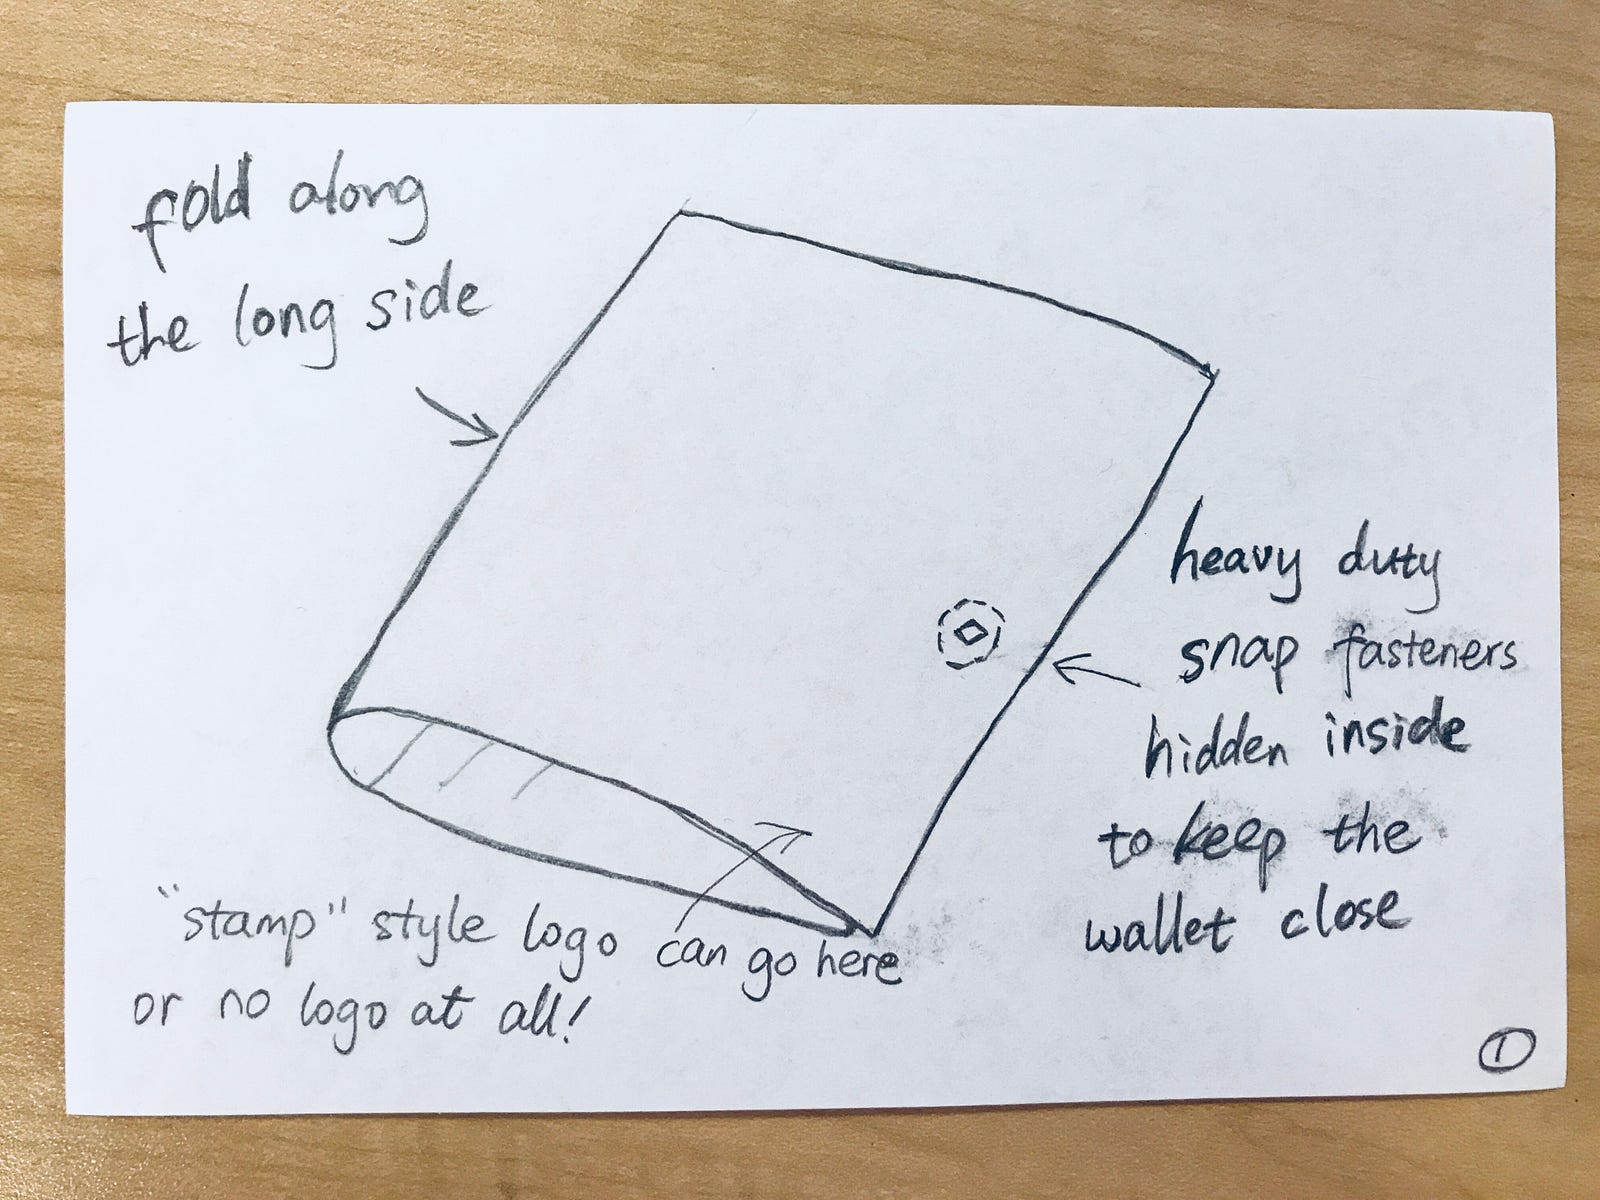 fold along
the long side
heavy duty
snap fasteners
hidden inside
to keep the
wallet close
"stamp" style logo can go here
or no logo at all!
1